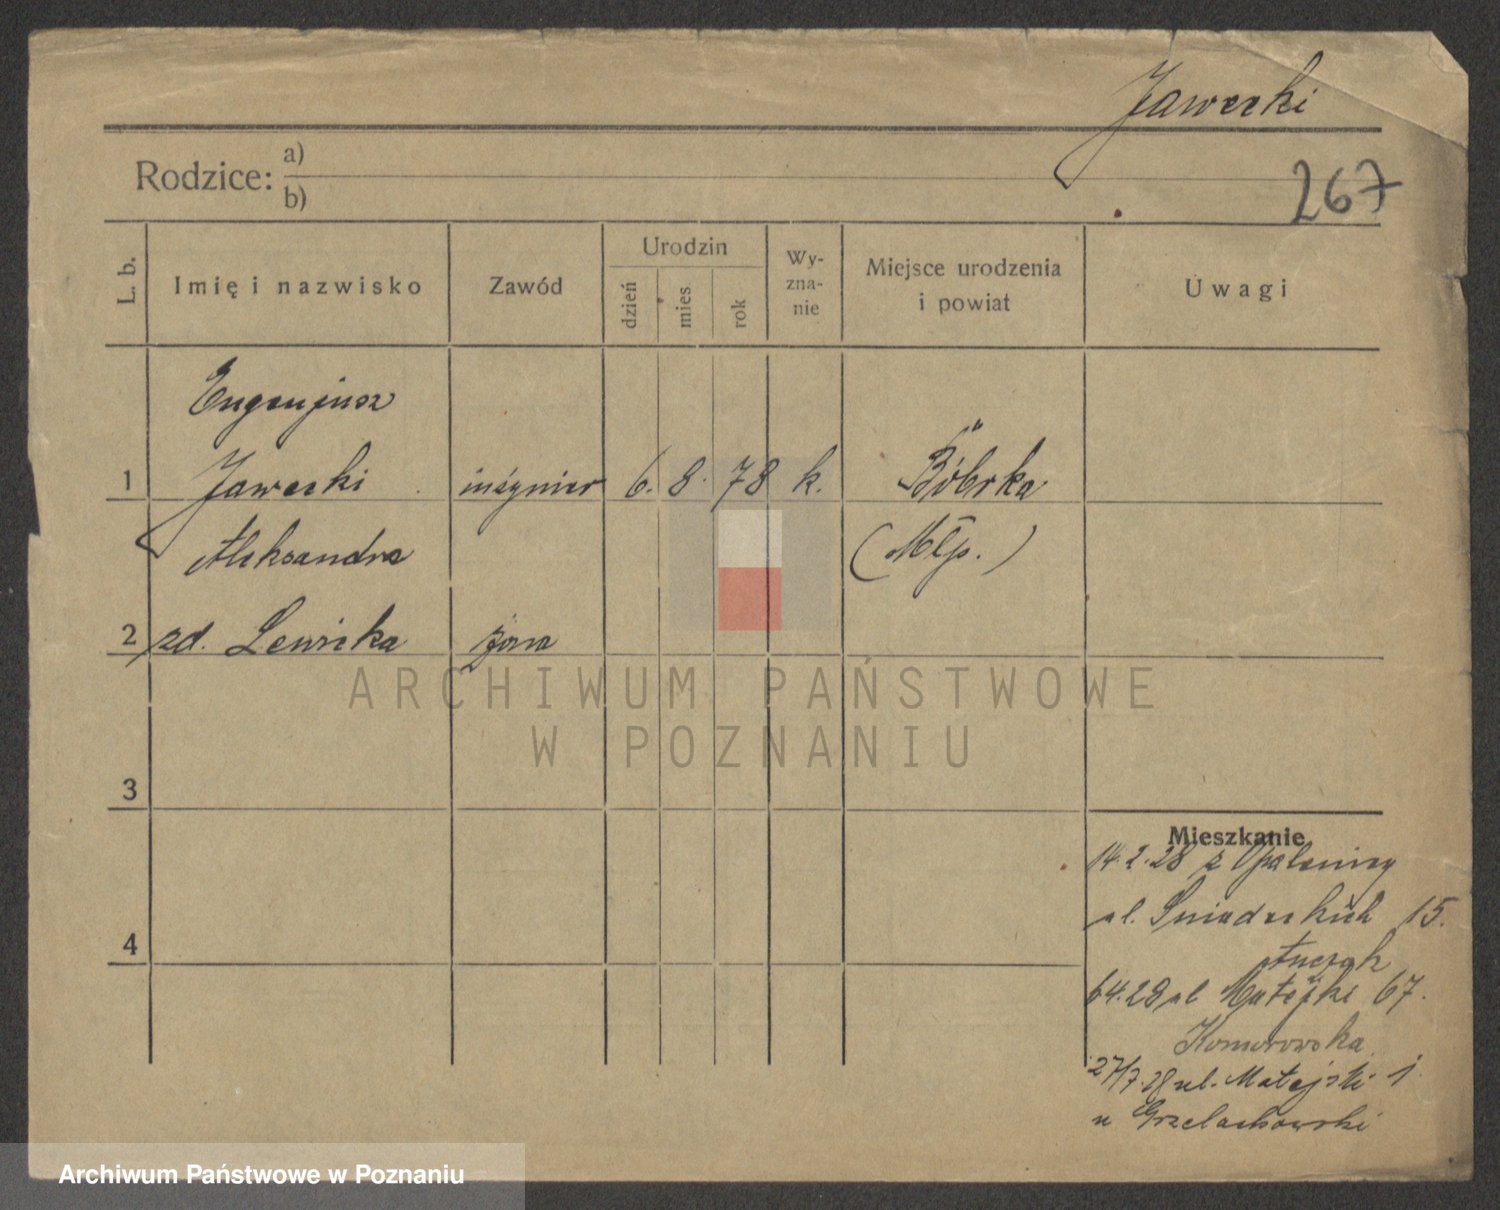 Jawecki
Rodzice: a)
b)
267
L. b.
Imię i nazwisko
Zawód
Urodzin
dzień
mies
rok
Wy-
zna-
nie
Miejsce urodzenia
i powiat
Uwagi
Eugenjusz
1 Jawecki inżynier 6. 8. 78 k. Bóbrka
Aleksandra (Młp.)
2 zd. Lewicka żona
ARCHIWUM PAŃSTWOWE
W POZNANIU
3
Mieszkanie
14.2.28 z Opalenicy
ul. Śniadeckich 15.
4
6 4.28 ul Matejki 67.
Komorowska
27/7.28 ul. Matejki 1
u Grzelachowski
Archiwum Państwowe w Poznaniu